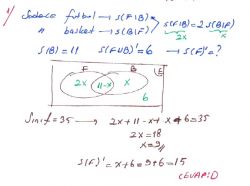 1) Sadece futbol → s(F\B)
" basket → s(B\F)
s(F\B) = 2s(B\F)
2x x
s(B) = 11 s(F∪B)' = 6 → s(F)' = ?
F B E
2x 11-x x
6
Sınıf = 35 → 2x + 11 - x + x + 6 = 35
2x = 18
x = 9
s(F)' = x + 6 = 9 + 6 = 15
CEVAP: D